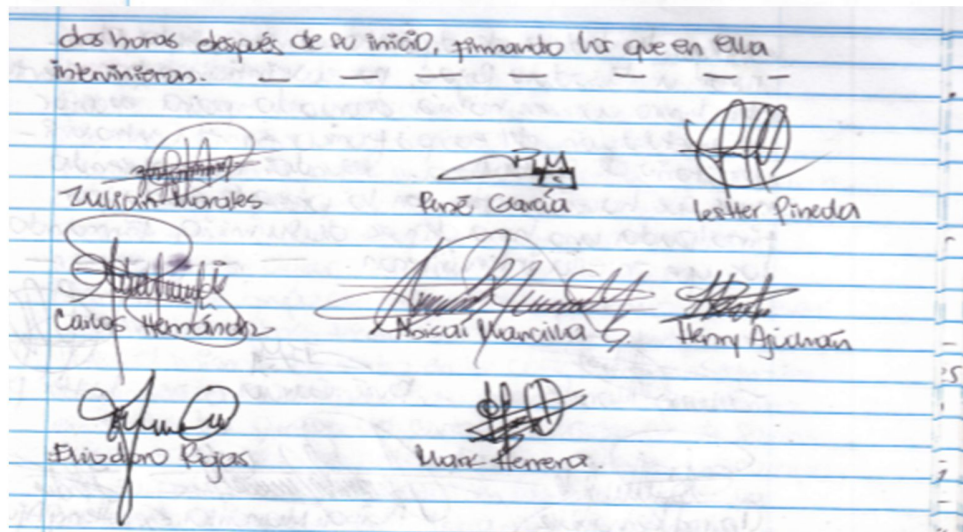 dos horas después de su inicio, firmando los que en ella
intervinieron. — — — — — — —
Julián Morales René García Lester Pineda
Carlos Hernández Abisai Mancilla Henry Ajuchán
Eliodoro Rojas Mark Herrera.